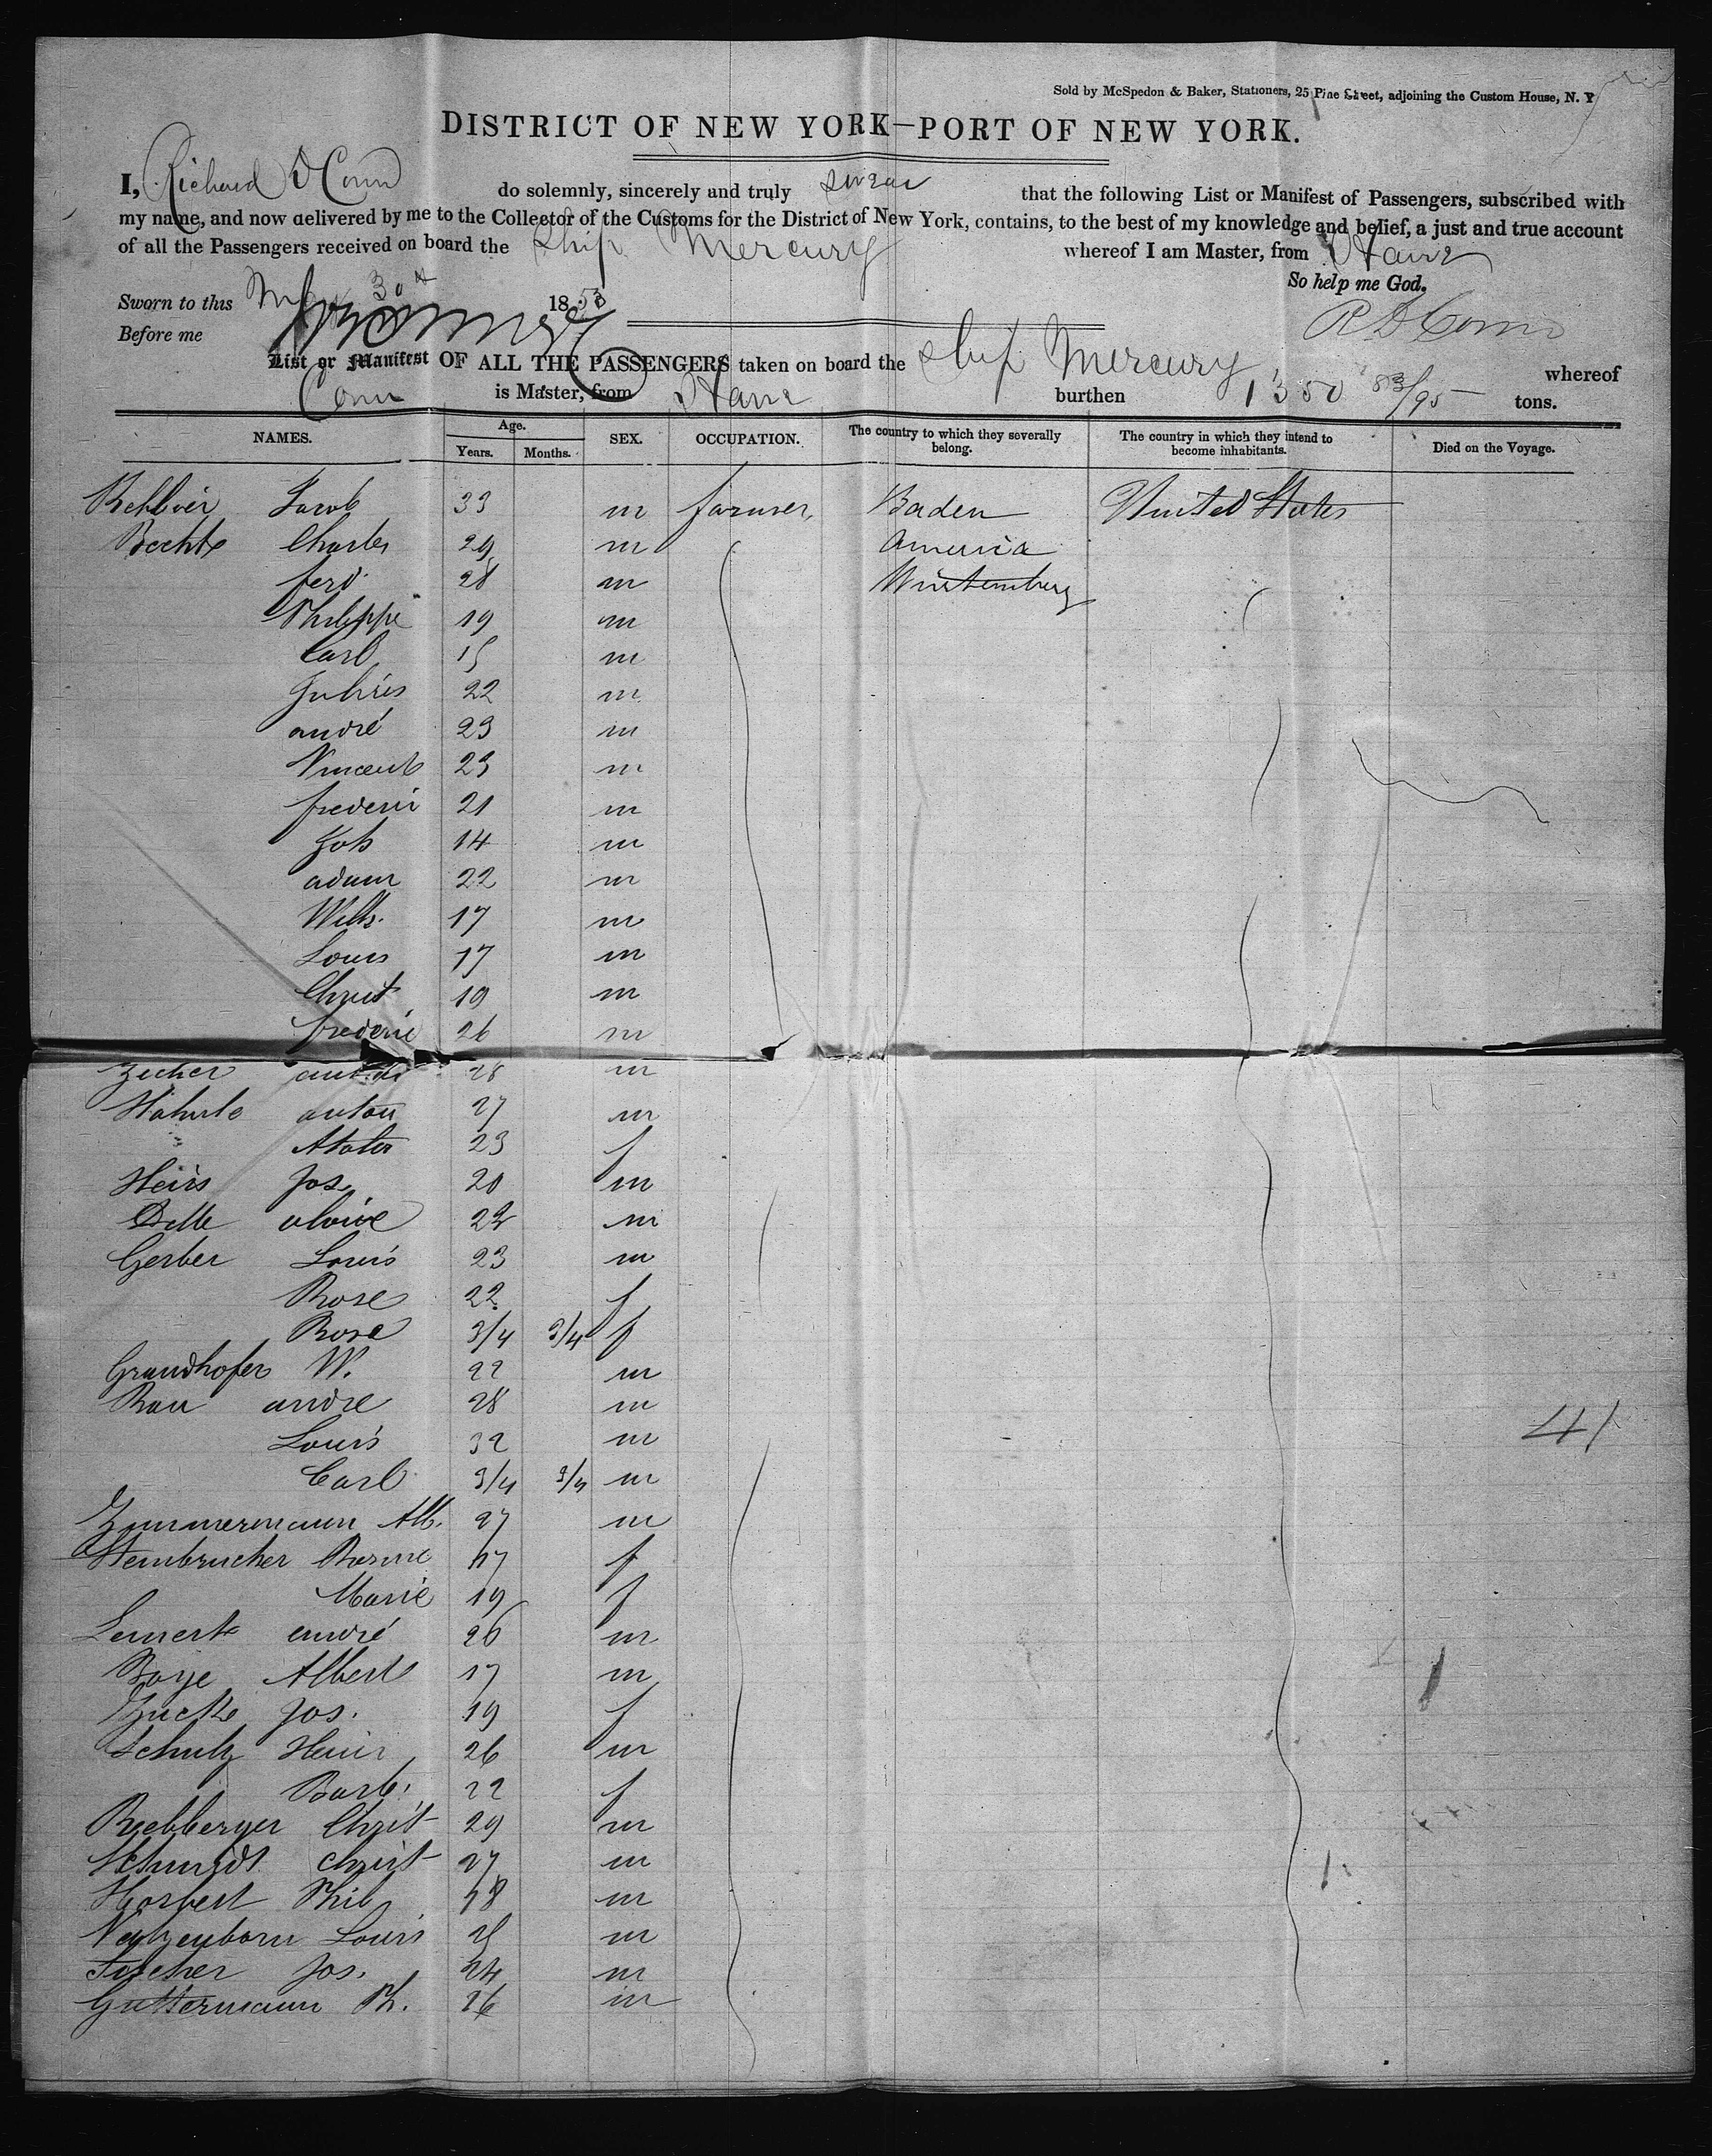 Sold by McSpedon & Baker, Stationers, 25 Pine Street, adjoining the Custom House, N. Y
DISTRICT OF NEW YORK—PORT OF NEW YORK.
I, Richard D Conn do solemnly, sincerely and truly swear that the following List or Manifest of Passengers, subscribed with
my name, and now delivered by me to the Collector of the Customs for the District of New York, contains, to the best of my knowledge and belief, a just and true account
of all the Passengers received on board the Ship Mercury whereof I am Master, from Havre
So help me God.
Sworn to this 30th 1853
Before me
R D Conn
List or Manifest OF ALL THE PASSENGERS taken on board the Ship Mercury whereof
Conn is Master, from Havre burthen 1350 83/95 tons.
NAMES. Age. Years. Months. SEX. OCCUPATION. The country to which they severally belong. The country in which they intend to become inhabitants. Died on the Voyage.
Jacob 33 m farmer, Baden United States
Bechte Charles 29 m America
ferd. 28 m Wurtemberg
Philippe 19 m
Carl 15 m
22 m
andré 23 m
Vincent 23 m
frederic 21 m
Joh 14 m
adam 22 m
Wilh. 17 m
Louis 17 m
Christ 19 m
frederic 26 m
Zecher 28 m
anton 27 m
23 f
Heirs Jos. 20 m
22 m
Gerber Louis 23 m
Rose 22 f
Rosa 3/4 3/4 f
Grandhofer W. 22 m
Rau andre 28 m
Louis 32 m
Carl 3/4 3/4 m
Zimmermann Alb. 27 m
Steinbrucher 17 f
Marie 19 f
andré 26 m
Albert 17 m
Jos. 19 f
Schulz Heinr 26 m
Barb. 22 f
Rebberger Christ 29 m
Schmidt Christ 27 m
Horbert Phil 18 m
Louis 25 m
Jos. 24 m
Guttermann Ph. 26 m
41